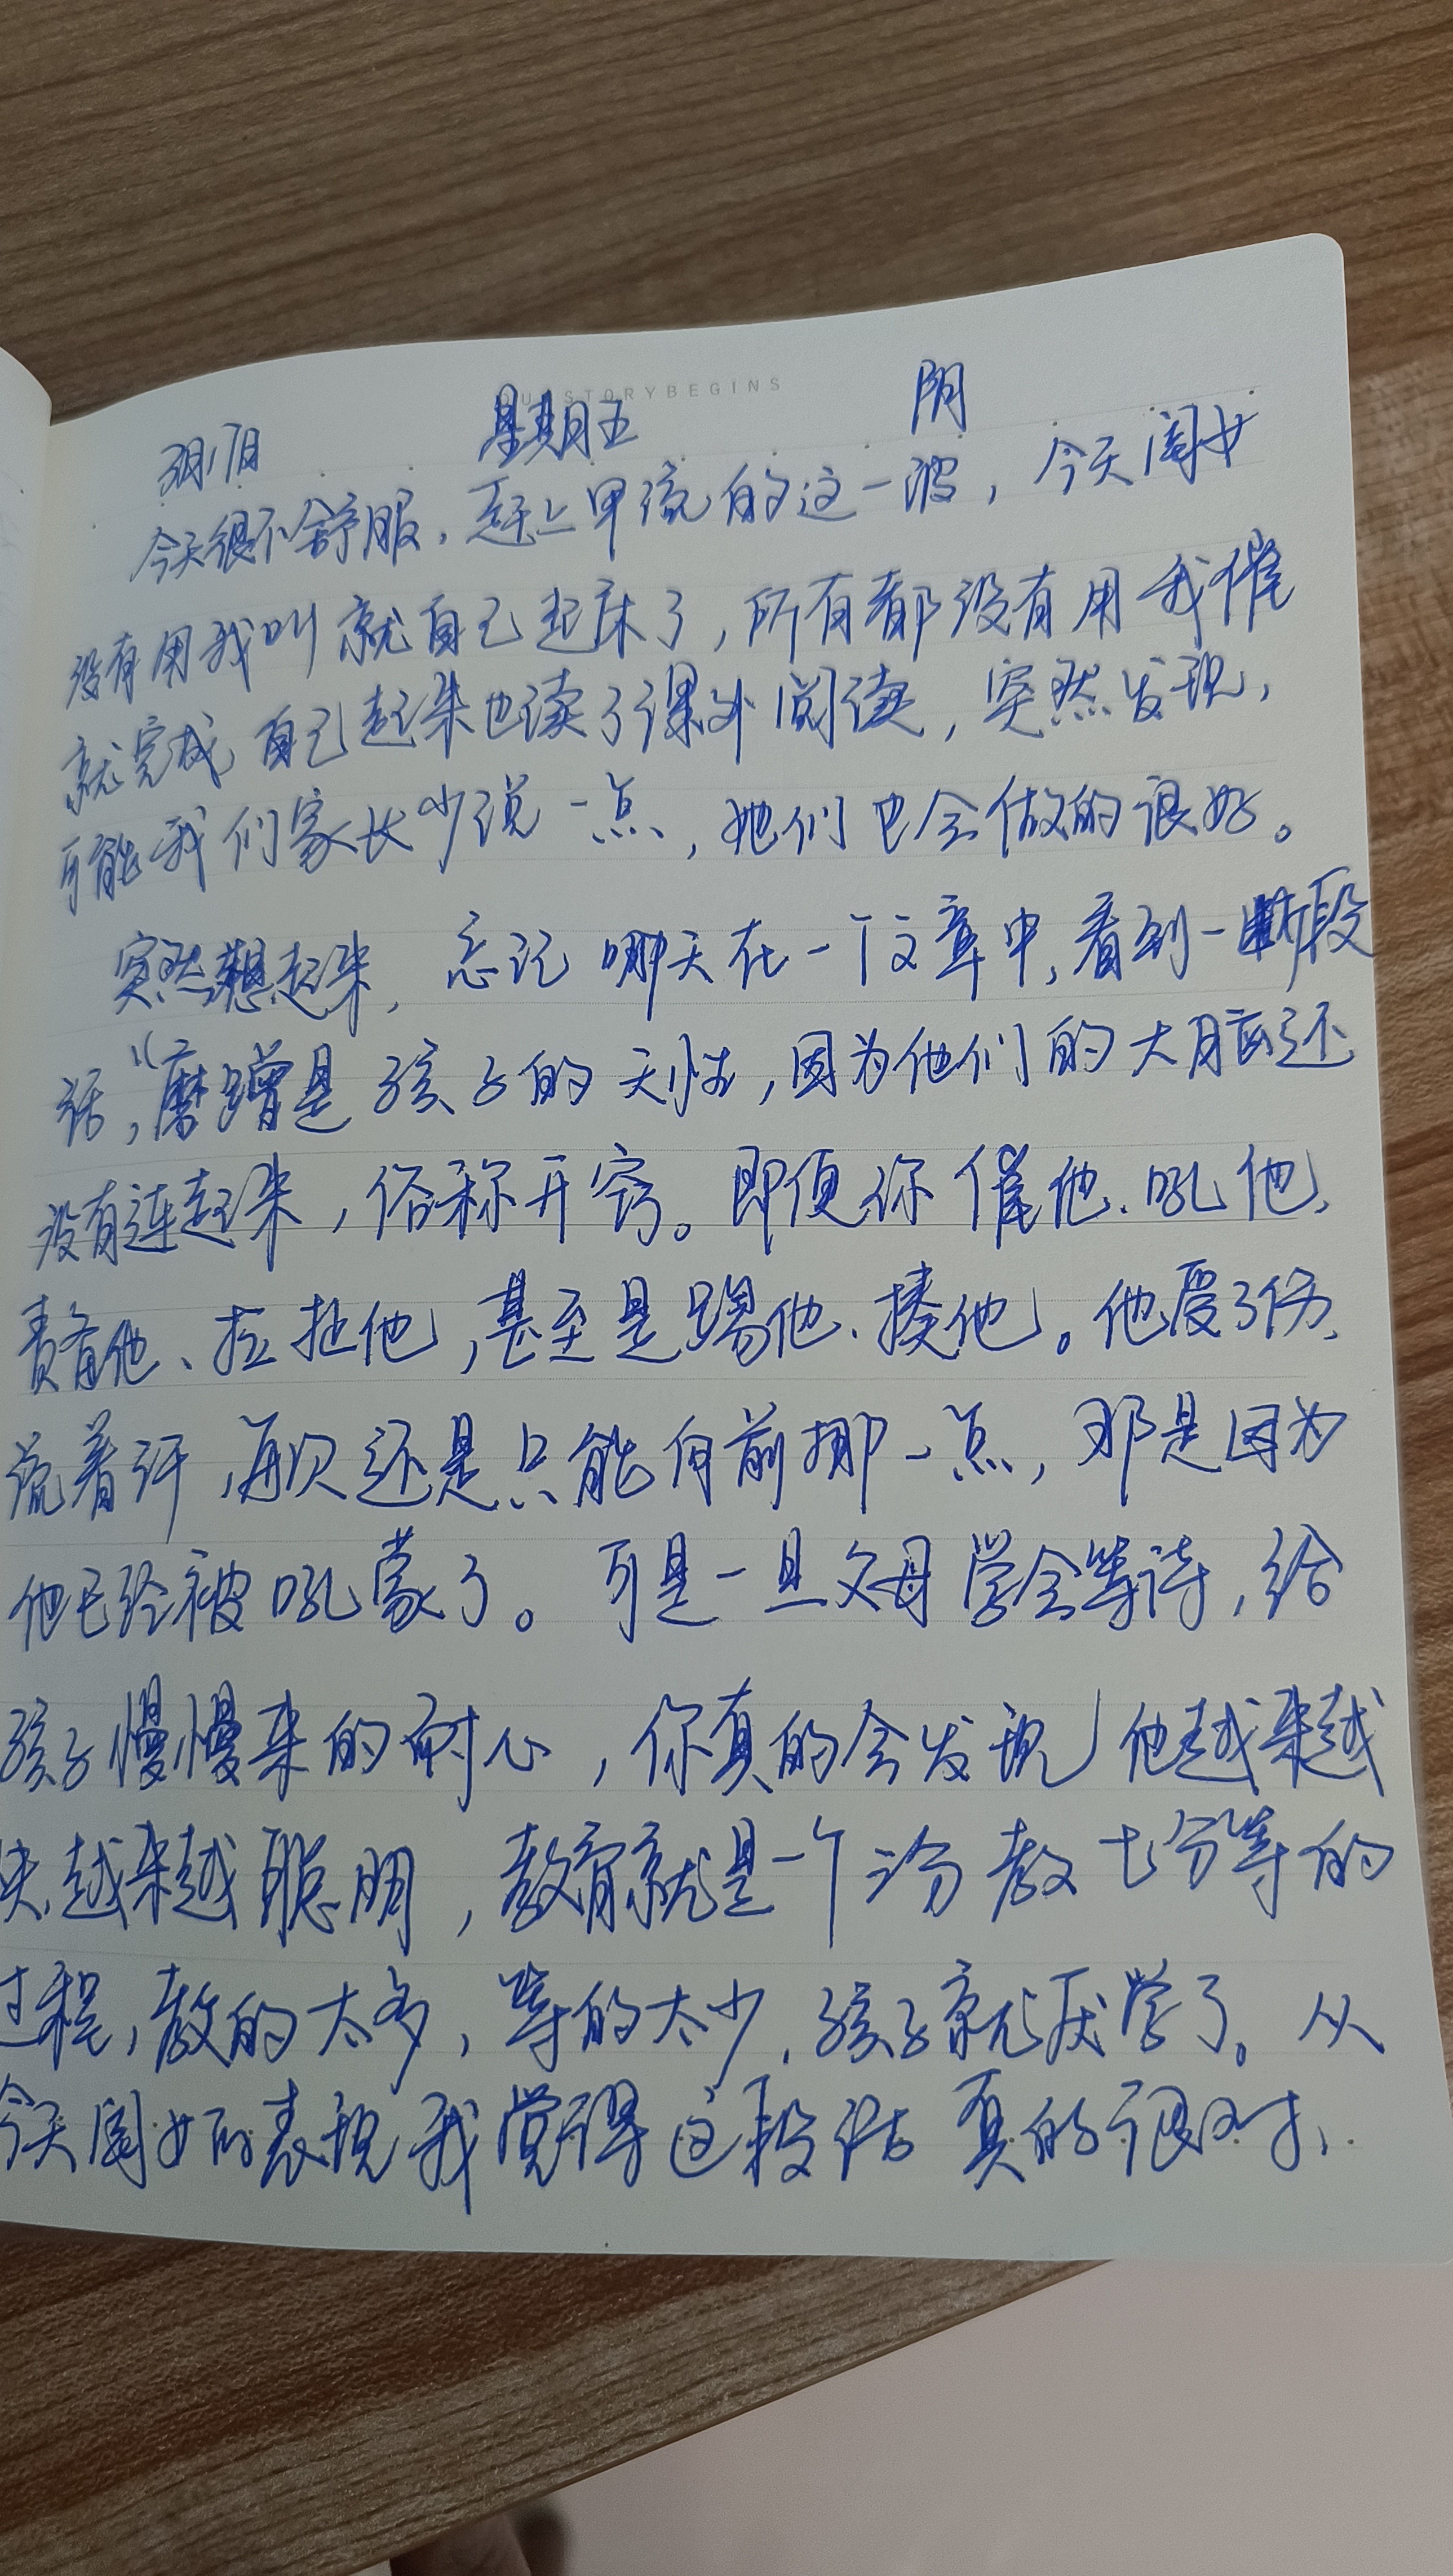 OUR STORY BEGINS
3月17日 星期五 阴
今天很不舒服，赶上甲流的这一波，今天闺女
没有用我叫就自己起床了，所有都没有用我催
就完成自己起来也读了课外阅读，突然发现，
可能我们家长少说一点，她们也会做的很好。
突然想起来，忘记哪天在一个文章中，看到一段
话，“磨蹭是孩子的天性，因为他们的大脑还
没有连起来，俗称开窍。即便你催他、吼他、
责备他、拉扯他，甚至是踢他、揍他。他受了伤、
流着汗，再次还是只能向前挪一点，那是因为
他已经被吼蒙了。可是一旦父母学会等待，给
孩子慢慢来的耐心，你真的会发现他越来越
快越来越聪明，教育就是一个三分教七分等的
过程，教的太多，等的太少，孩子就厌学了。从
今天闺女的表现我觉得这段话真的很对、